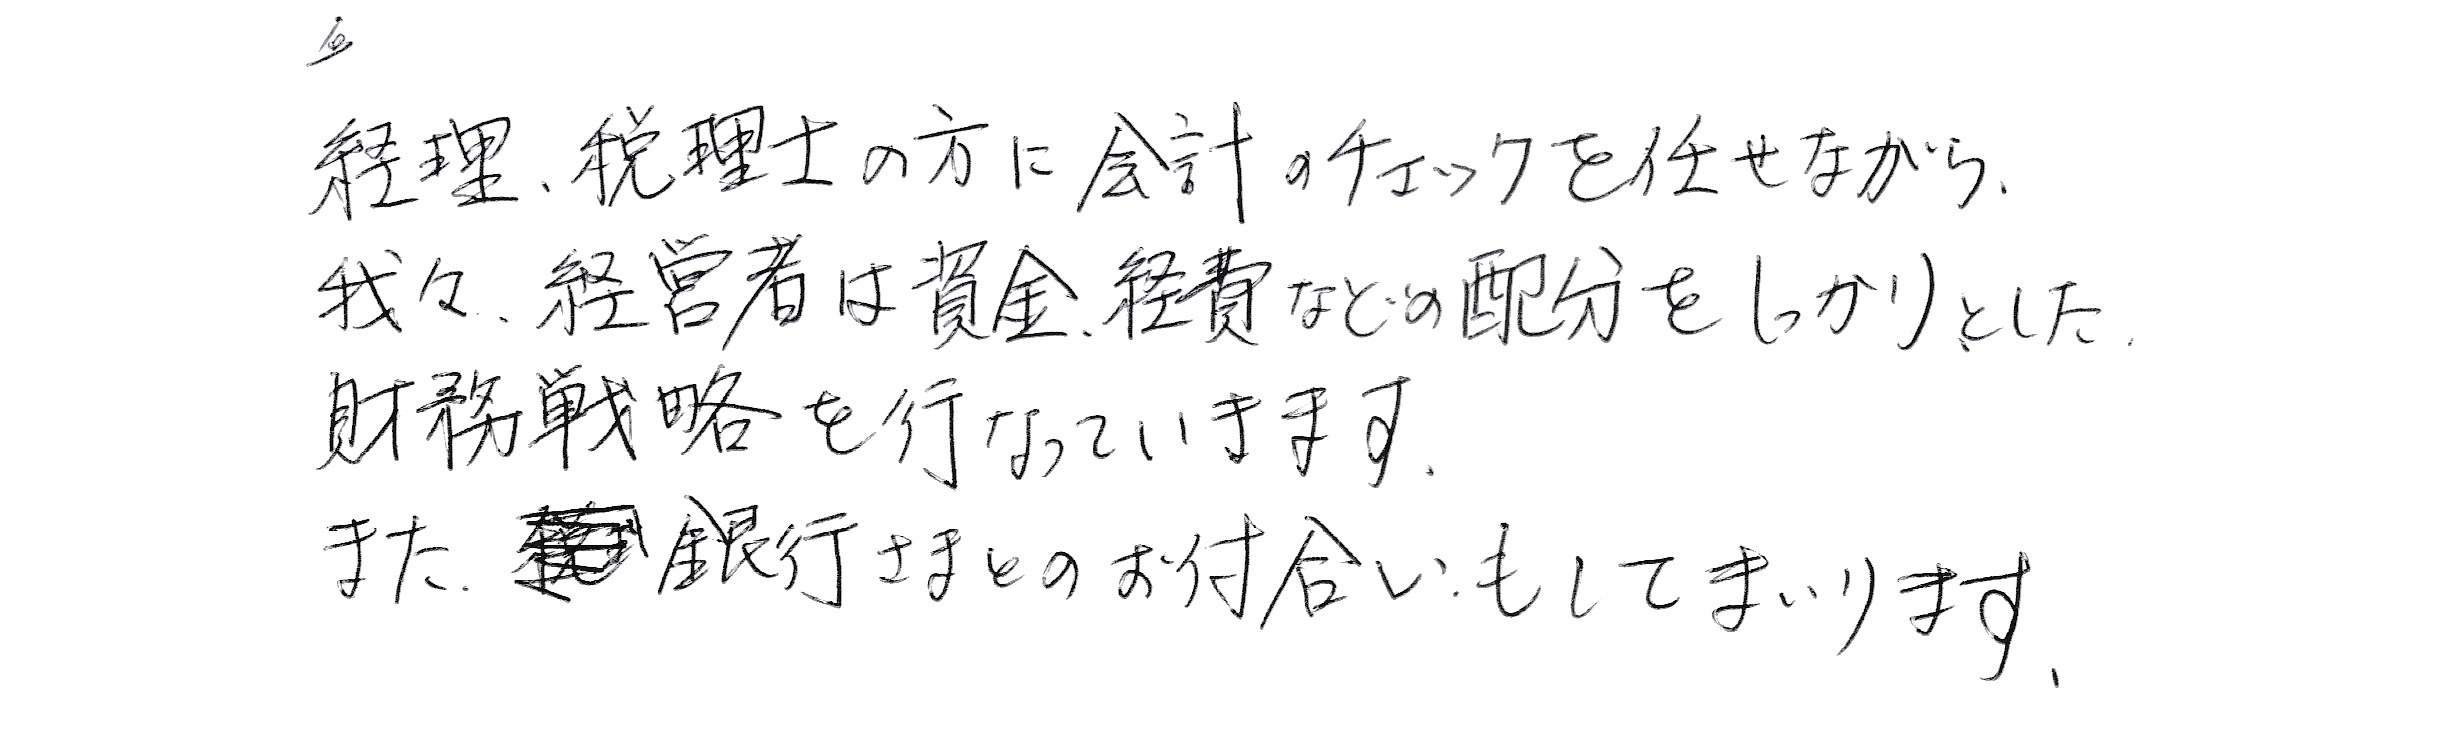 経理、税理士の方に会計のチェックを任せながら、
我々、経営者は資金、経費などの配分をしっかりとした
財務戦略を行なっていきます。
また、銀行さまとのお付合いもしてまいります、